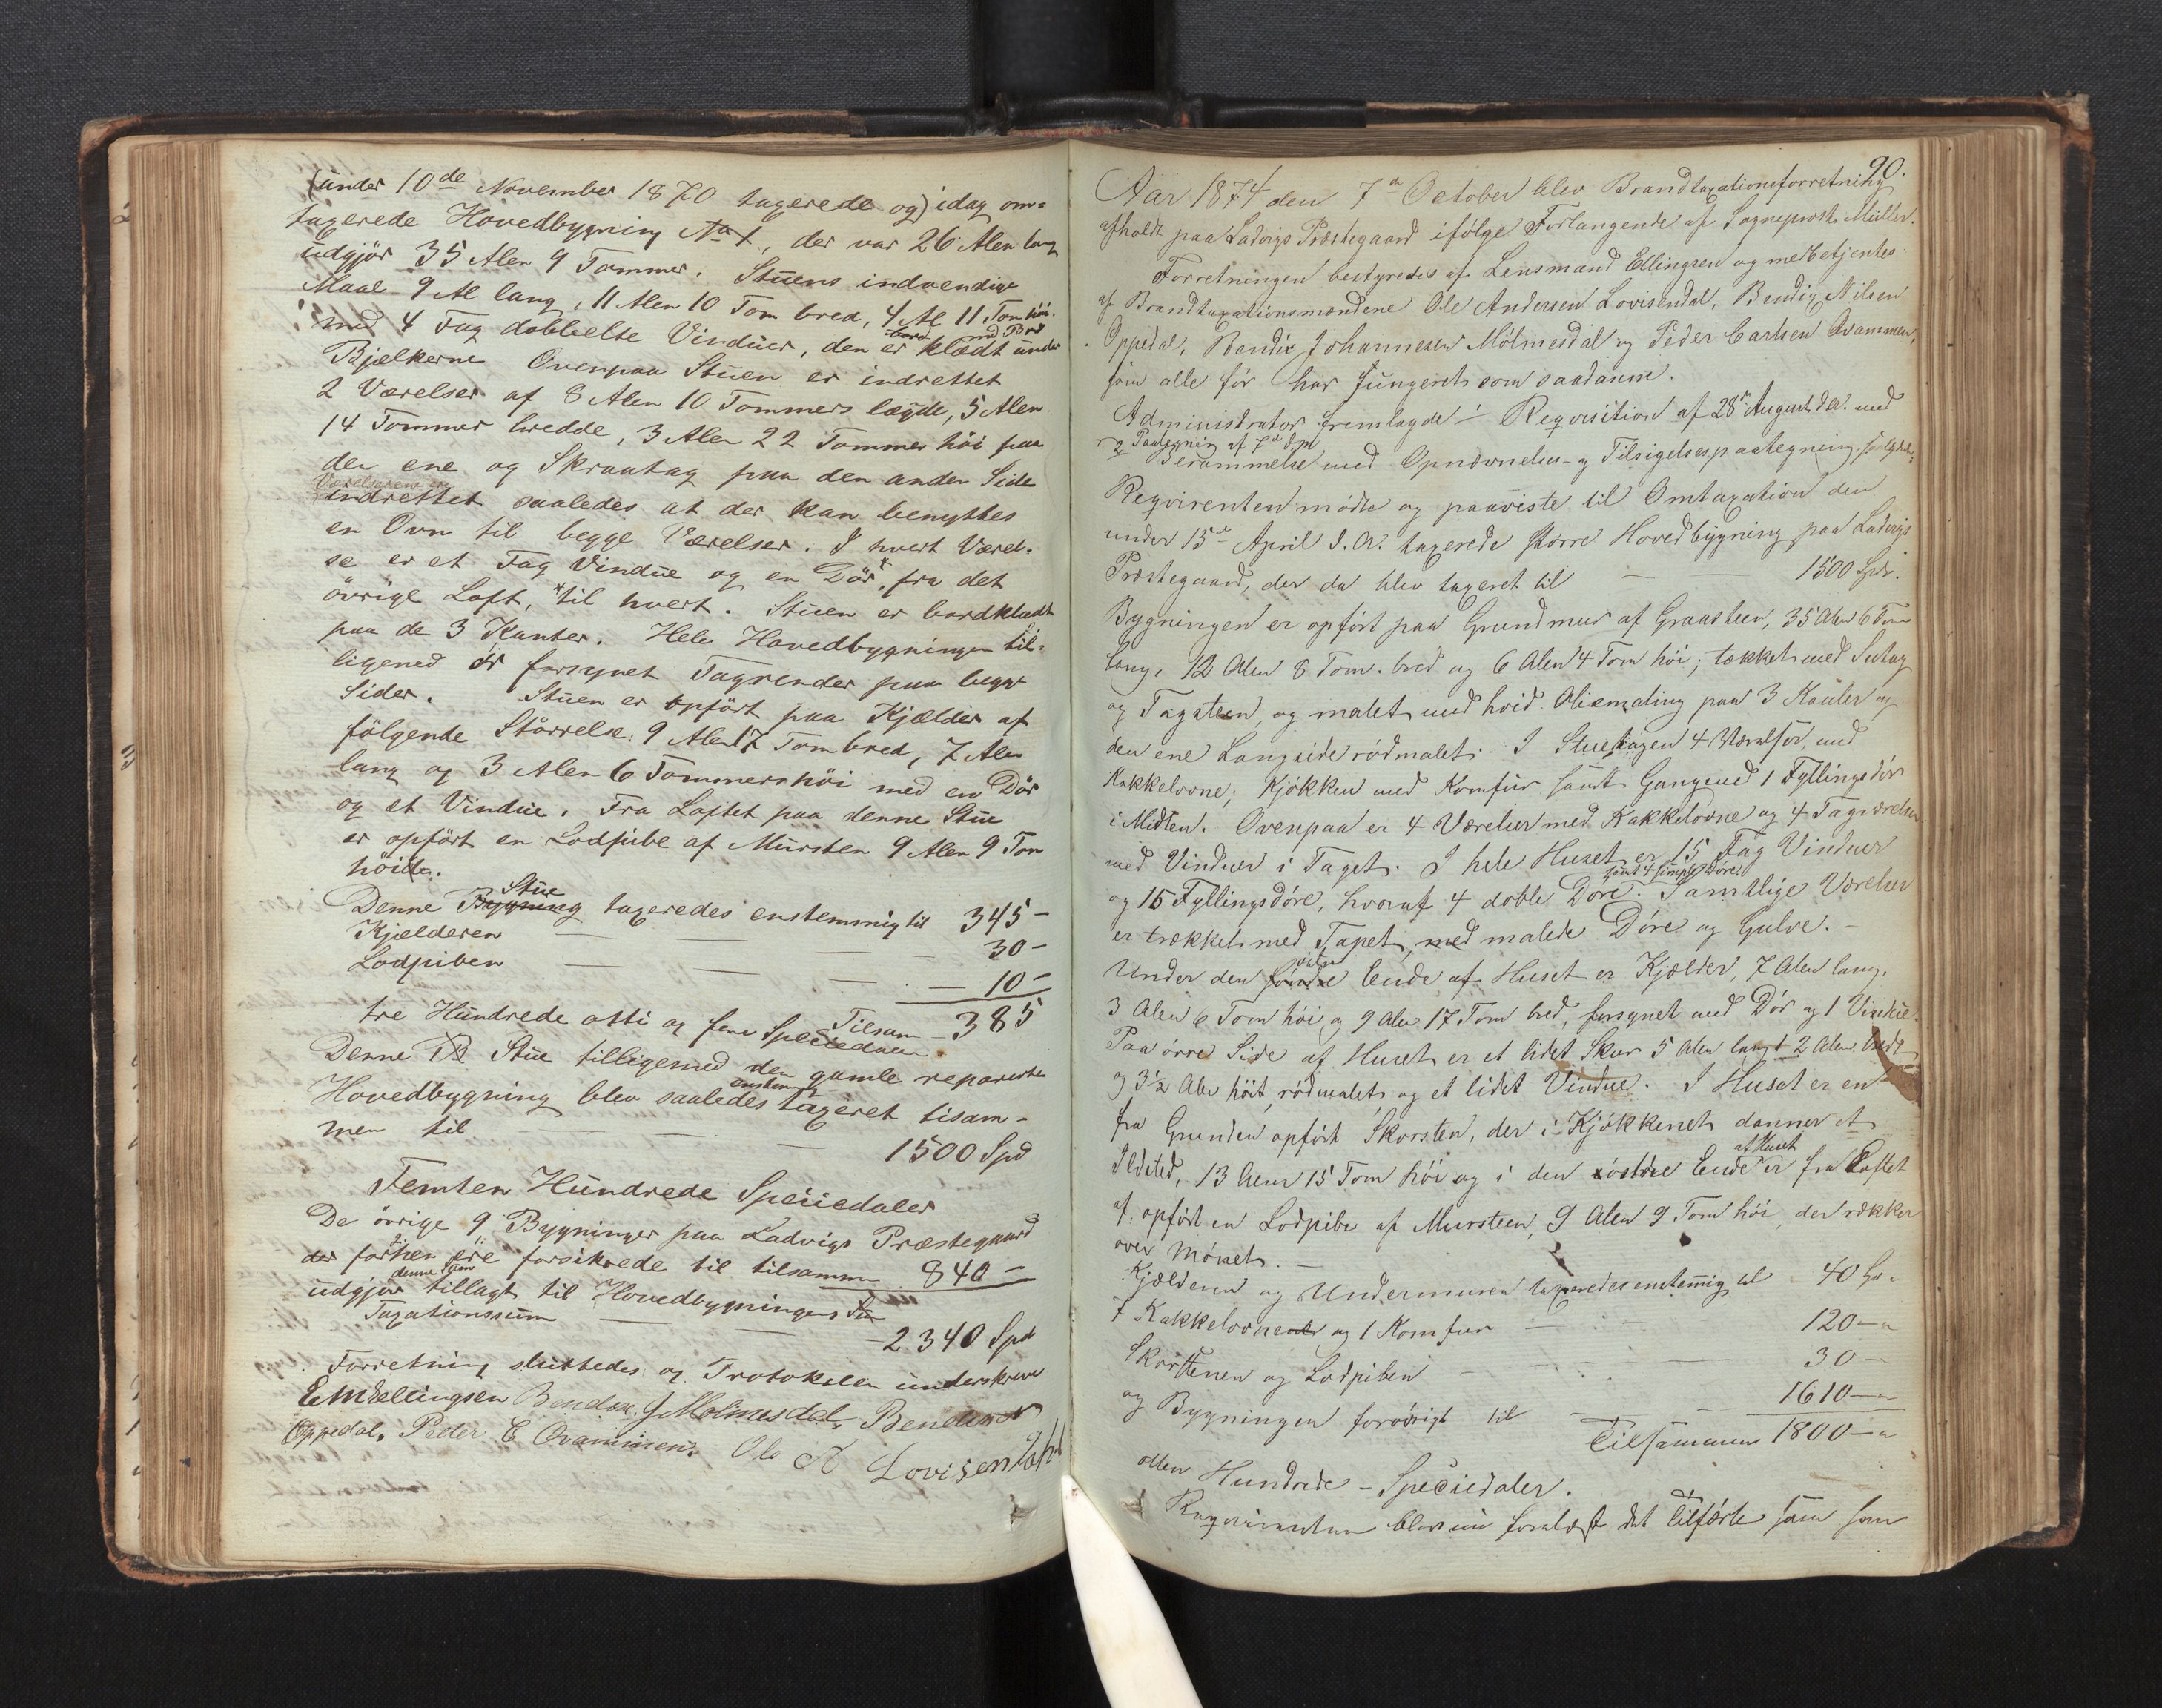 (under 10de November 1870 taxerede og) idag om=
taxerede Hovedbygning No 1, der var 26 Alen lang
udgjør 35 Alen 9 Tommer. Stuens indvendige
Maal 9 Al lang, 11 Alen 10 Tom bred, 4 Al 11 Tom høi.
med 4 Fag dobbelte Vinduer, den er klædt under
Bjælkerne Ovenpaa Stuen er indrettet
2 Værelser af 8 Alen 10 Tommers lægde, 5 Alen
14 Tommer bredde, 3 Alen 22 Tommer høi paa
den ene og Skraatag paa den anden Side
Værelserne er
indrettet saaledes at der kan benyttes
en Ovn til begge Værelser. I hvert Værel-
se er et Fag Vindue og en Dör*, fra det
övrige Loft, *til hvert. Stuen er bordklædt
paa de 3 Kanter. Hele Hovedbygningen til=
ligemed er forsynet Tagrender paa begge
Sider. Stuen er opfört paa Kjælder af
fölgende Störrelse: 9 Alen 17 Tom bred, 7 Alen
lang og 3 Alen 6 Tommers höi med en Dör
og et Vindue. Fra Loftet paa denne Stue
er opfört en Lodpibe af Mursten 9 Alen 9 Tom
höide.
Stue
Denne Bygning taxeredes enstemmig til 345 -
Kjælderen — — — 30 -
Lodpiben — — — 10 -
Tilsam - 385
tre Hundrede otti og fem Speciedaler
Denne B Stue tilligemed den gamle reparerte
enstem
Hovedbygning blev saaledes taxeret tilsam-
men til — — 1500 Spd
Femten Hundrede Speciedaler
De övrige 9 Bygninger paa Ladvigs Præstegaard
der forhen ere forsikrede til tilsammen 840 -
denne Sum
udgjør tillagt til Hovedbygningens
Taxationssum — — 2340 Spd
Forretning sluttedes og Protokolen underskreven
EMEllingsen Bendix J Mölmesdal, Bendix N
Oppedal. Peder C Qvammen. Ole A Lovisendahl
90.
Aar 1874 den 7de October blev Brandtaxationsforretning
afholdt paa Ladvigs Præstegaard ifölge Forlangende af Sogneprest Müller.
Forretningen bestyredes af Lensmand Ellingsen og medbetjentes
af Brandtaxationsmændene Ole Andersen Lovisendal, Bendix Nilsen
Oppedal, Bendix Johannesen Mölmesdal og Peder Carlsen Qvammen,
som alle för har fungeret som saadanne.
Administrator fremlagde: Reqvisition af 28de August d.A. med
Paategning af 7de
Berammelse med Opnævnelses- og Tilsigelsespaategning
Reqvirenten mödte og paaviste til Omtaxation den
under 15de April d.A. taxerede större Hovedbygning paa Ladvigs
Præstegaard, der da blev taxeret til — — 1500 Spd.
Bygningen er opfört paa Grundmur af Graasteen, 35 Alen 6 Tom
lang, 12 Alen 8 Tom. bred og 6 Alen 4 Tom höi; tækket med Sutag
og Tagsteen, og malet med hvid Oliemaling paa 3 Kanter og
den ene Langside rödmalet. I Stueetagen 4 Værelser, med
Kakkelovne; Kjökken med Komfur samt Gang med 1 Fyllingsdör
i Midten. Ovenpaa er 4 Værelser med Kakkelovne og 4 Tagværelser
med Vinduer i Taget. I hele Huset er 15 Fag Vinduer
samt 4 simple Döre.
og 15 Fyllingsdöre, hvoraf 4 doble Döre Samtlige Værelser
er trækket med Tapet, med malede Döre og Gulve. -
östre
Under den söndre Ende af Huset er Kjælder, 7 Alen lang,
3 Alen 6 Tom höi og 9 Alen 17 Tom bred, forsynet med Dör og 1 Vindue.
Paa övre Side af Huset er et lidet Skur 5 Alen langt 2 Alen bredt
og 3½ Alen höit, rödmalet, og et lidet Vindue. I Huset er en
fra Grunden opfört Skorsten, der i Kjökkenet danner et
af Huset
Ildsted, 13 Alen 15 Tom höi og i den östre Ende er fra Loftet
af, opfört en Lodpibe af Mursteen, 9 Alen 9 Tom höi, der rækker
over Mönet. -
Kjælderen og Undermuren taxeredes enstemmig til 40 Spd.
7 Kakkelovne og 1 Komfur — — 120 - "
Skorstenen og Lodpiben — — 30 -
og Bygningen forövrigt til — — 1610 - "
Tilsammen 1800 - "
atten Hundrede - Speciedaler.
Reqvirenten blev nu forelæst det Tilförte som som